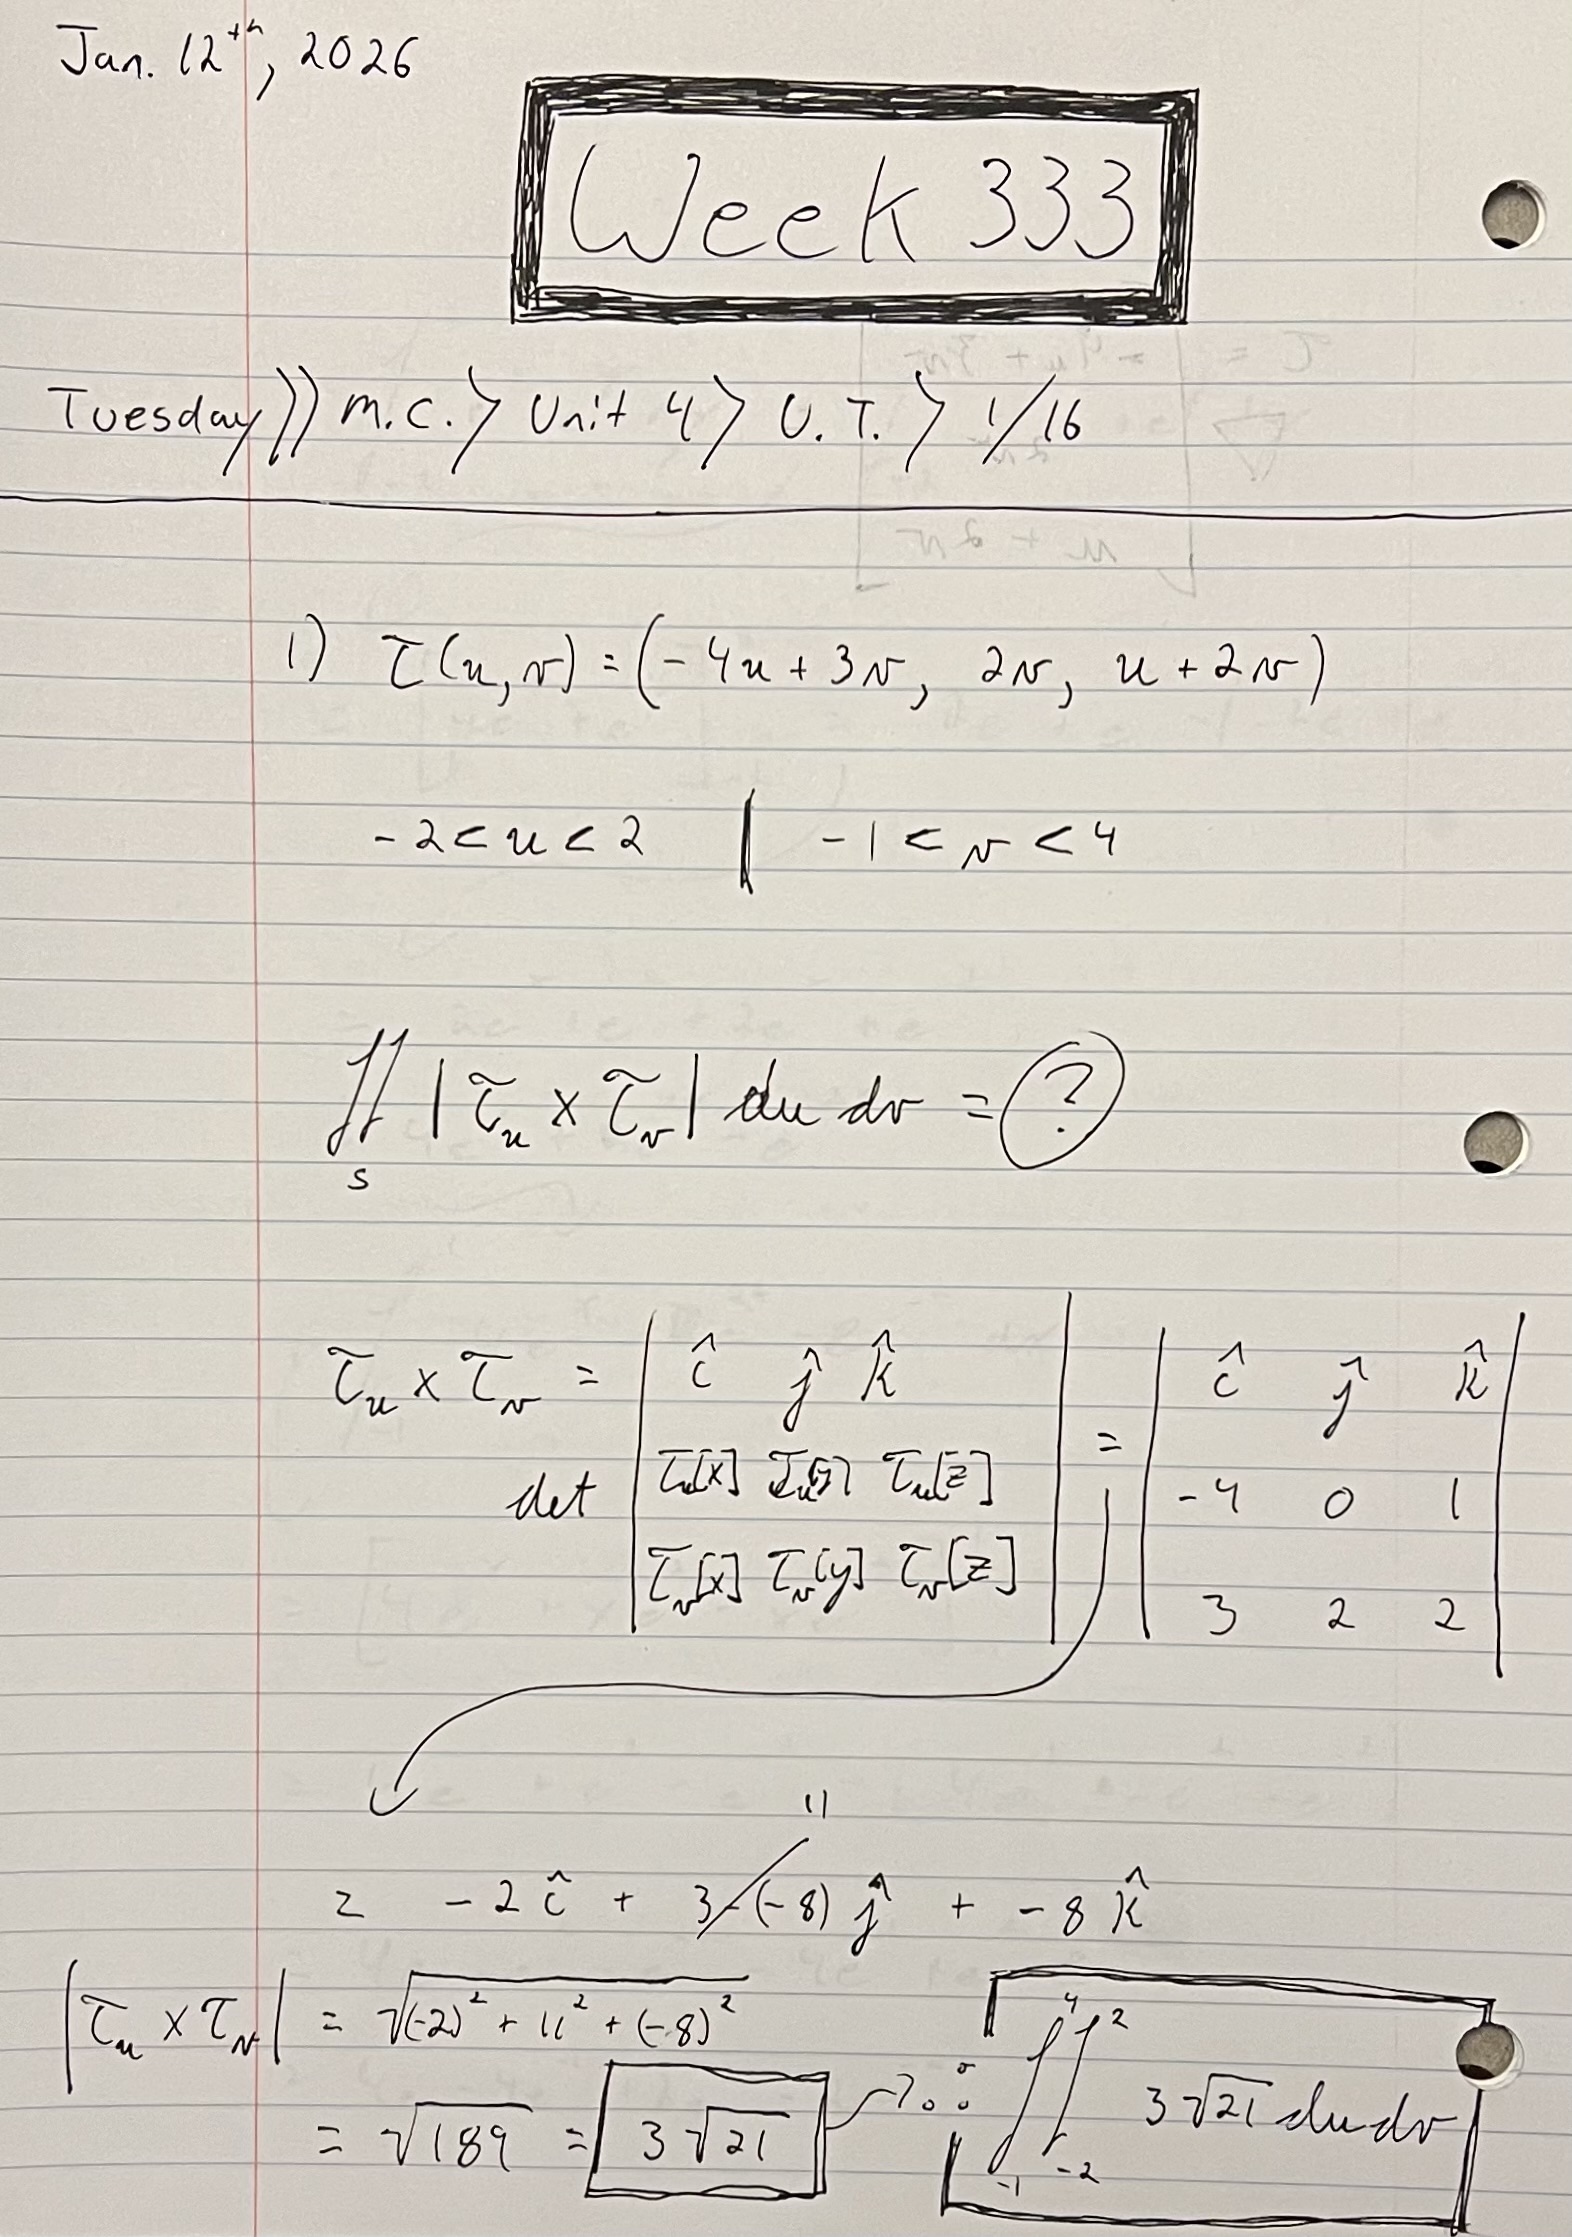 Jan. 12th, 2026
Week 333
Tuesday⟩⟩ M.C.⟩ Unit 4⟩ U.T.⟩ 1/16
1) τ(u,v) = (-4u + 3v, 2v, u + 2v)
-2 < u < 2 | -1 < v < 4
∬_S |τ_u × τ_v| du dv = ?
τ_u × τ_v = det | î ĵ k̂ | = | î ĵ k̂ |
| τ_u[x] τ_u[y] τ_u[z] | | -4 0 1 |
| τ_v[x] τ_v[y] τ_v[z] | | 3 2 2 |
11
= -2 î + 3-(-8) ĵ + -8 k̂
|τ_u × τ_v| = √((-2)² + 11² + (-8)²)
= √189 = 3√21 → ∴ ∫_{-1}^{4} ∫_{-2}^{2} 3√21 du dv